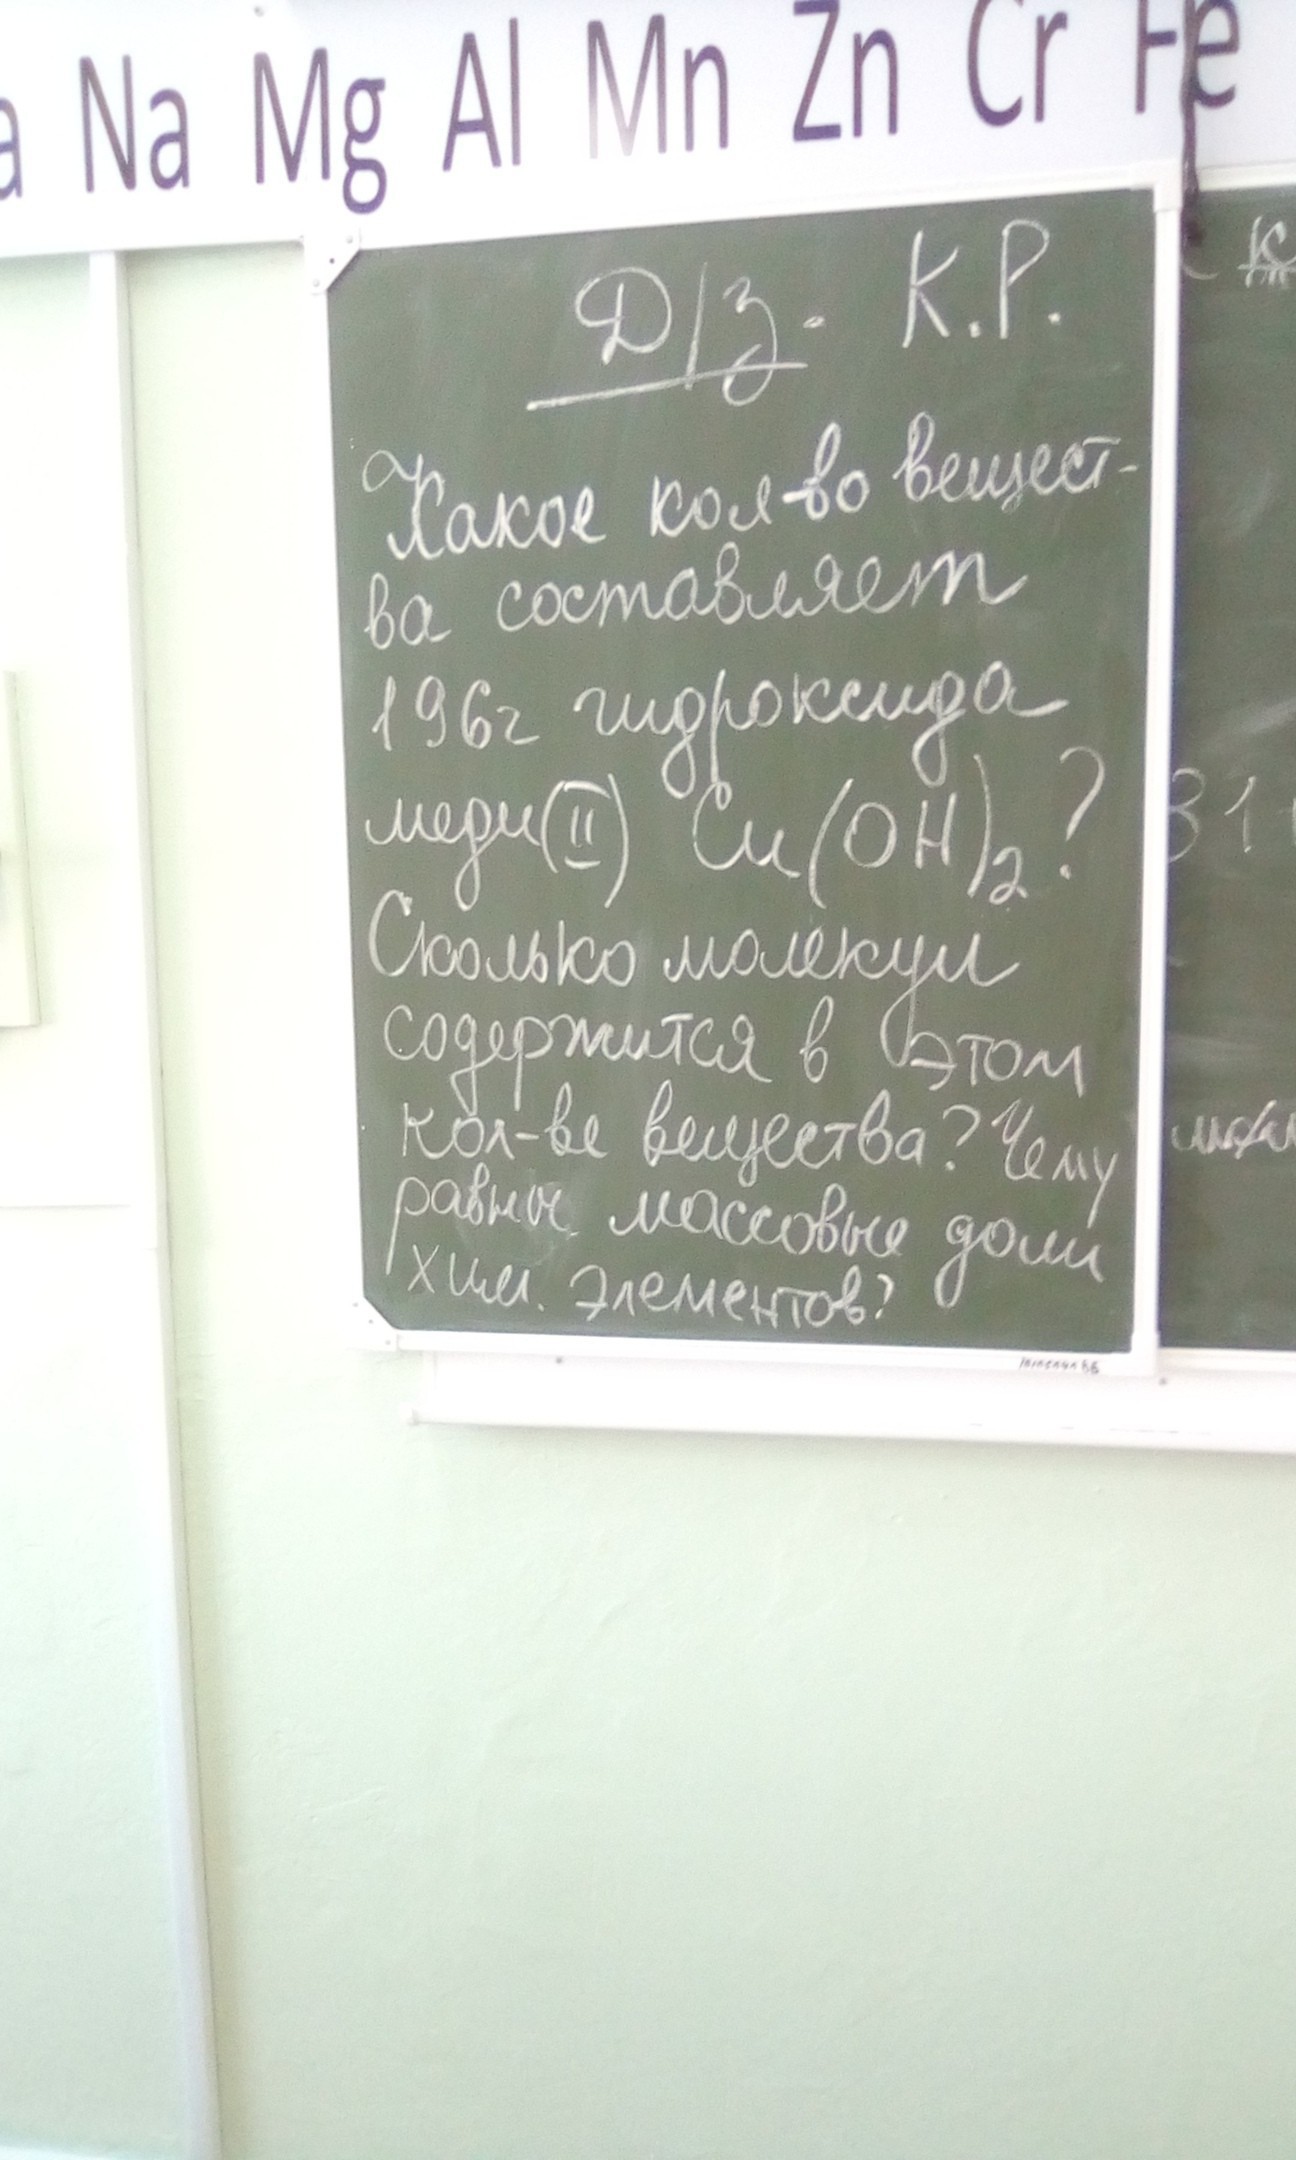 a Na Mg Al Mn Zn Cr Fe
Д/З - К.Р.
Какое кол-во вещест-
ва составляет
196г гидроксида
меди(II) Cu(OH)2?
Сколько молекул
содержится в этом
кол-ве вещества? Чему
равны массовые доли
хим. элементов?